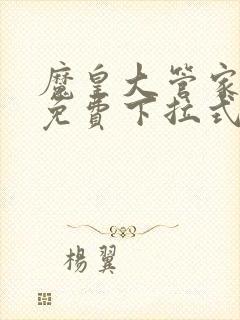 魔皇大管家
免費下拉式
楊翼